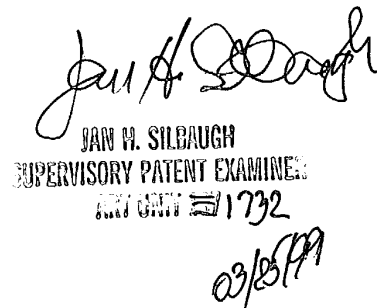 Jan H. Silbaugh
JAN H. SILBAUGH
SUPERVISORY PATENT EXAMINER
ART UNIT 1732
03/25/99